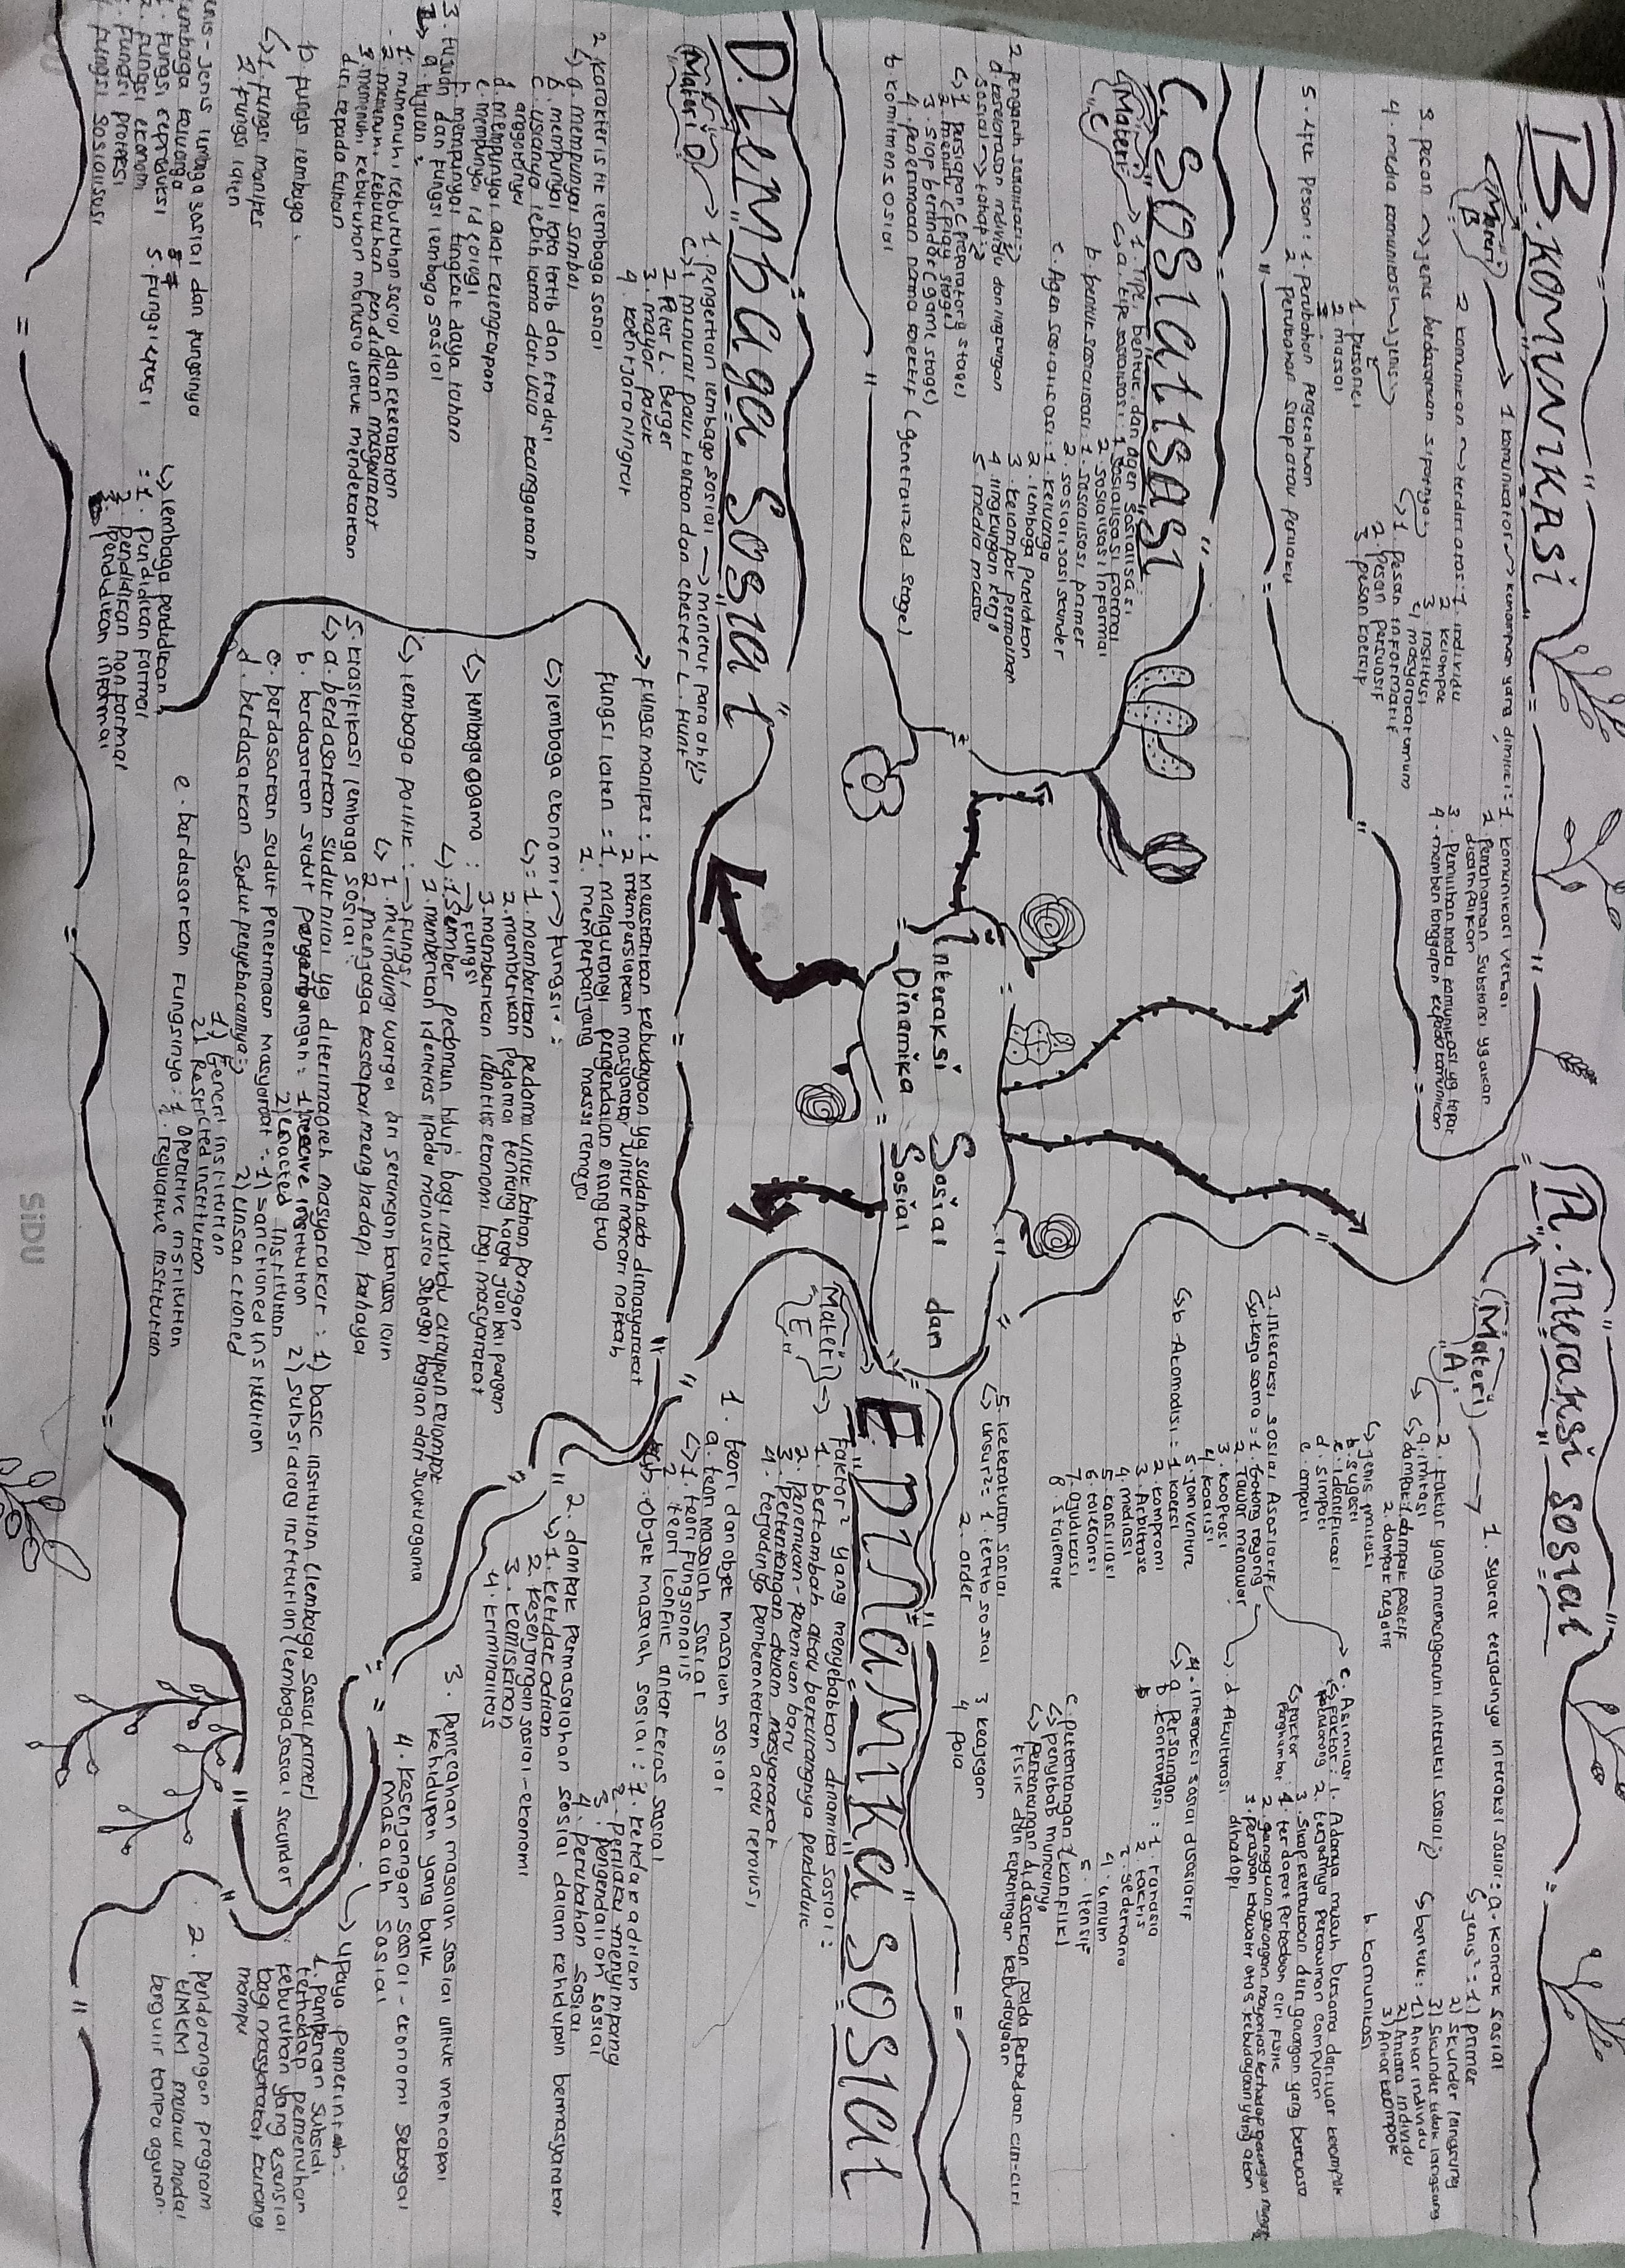 B. KOMUNIKASI
(Materi B)
1. komunikator → kemampuan yang dimiliki : 1. komunikasi verbal
2. Pemahaman Substansi yg akan
disampaikan
3. Pemilihan media komunikasi yg tepat
4. memberi tanggapan kepada komunikan
2. komunikan → terdiri atas : 1. individu
2. kelompok
3. institusi
4. masyarakat umum
3. pesan → jenis berdasarkan sifatnya
↳ 1. pesan informatif
2. pesan persuasif
3. pesan koersif
4. media komunikasi → jenis²
1. personel
2. massal
5. efek Pesan : 1. perubahan pengetahuan
2. perubahan sikap atau perilaku
A. interaksi sosial
(Materi)
"A"
1. syarat terjadinya interaksi sosial : a. kontak sosial
↳ jenis² = 1) primer
2) Skunder langsung
3) Skunder tidak langsung
↳ bentuk : 1) Antar individu
2) Antara individu
3) Antar kelompok
b. komunikasi
2. faktor yang memengaruhi intraksi sosial
↳ a. imitasi
↳ dampak : 1. dampak positif
2. dampak negatif
↳ jenis imitasi
b. sugesti
c. identifikasi
d. simpati
e. empati
3. interaksi sosial Asosiatif
↳ a. kerja sama = 1. Gotong royong
2. Tawar menawar
3. kooptasi
4. koalisi
5. join venture
↳ b. Akomodasi = 1. koersi
2. kompromi
3. Arbitrase
4. mediasi
5. consiliasi
6. toleransi
7. ajudikasi
8. stalemate
c. Asimilasi
↳ faktor : 1. Adanya musuh bersama dari luar kelompok
pendorong 2. terjadinya percawinan campuran
3. sikap keterbukaan dari golongan yang berkuasa
↳ faktor : 1. terdapat perbedaan ciri fisik
penghambat 2. gangguan golongan mayoritas terhadap golongan
3. perasaan khawatir atas kebudayaan yang akan
dihadapi
d. Akulturasi
4. interaksi sosial disosiatif
↳ a. persaingan
b. kontravensi : 1. rahasia
2. taktis
3. sederhana
4. umum
5. itensif
c. pertentangan (konflik)
↳ penyebab munculnya
↳ pertentangan di dasarkan pada perbedaan ciri-ciri
fisik dan kepentingan kebudayaan
5. keteraturan sosial
↳ unsur² = 1. tertib sosial 3. keajegan
2. order 4. pola
C. SOSIALISASI
(Materi "C")
1. Tipe, bentuk, dan agen sosialisasi
↳ a. tipe sosialisasi : 1. Sosialisasi formal
2. Sosialisasi informal
b. bentuk sosialisasi : 1. sosialisasi primer
2. sosialisasi skunder
c. Agen sosialisasi : 1. keluarga
2. lembaga pendidikan
3. kelompok permainan
4. lingkungan kerja
5. media massa
2. pengaruh sosialisasi
a. keselarasan individu dan lingkungan
sosial → tahap²
↳ 1. persiapan (preparatory stage)
2. meniru (play stage)
3. siap bertindak (game stage)
4. penerimaan norma kolektif (generalized stage)
b. komitmen sosial
Interaksi Sosial dan
Dinamika Sosial
D. Lembaga Sosial
(Materi D)
1. Pengertian lembaga sosial → menurut para ahli
↳ 1. menurut paul Horton dan chester L. Hunt
2. Peter L. Berger
3. mayor polak
4. koentjaraningrat
2. karakteristik lembaga sosial
↳ a. mempunyai simbol
b. mempunyai tata tertib dan tradisi
c. usianya lebih lama dari usia keanggotaan
anggotanya
d. mempunyai alat kelengkapan
e. mempunyai ideologi
f. mempunyai tingkat daya tahan
3. tujuan dan fungsi lembaga sosial
↳ a. tujuan :
1. memenuhi kebutuhan sosial dan kekerabatan
2. memenuhi kebutuhan pendidikan masyarakat
3. memenuhi kebutuhan manusia untuk mendekatkan
diri kepada tuhan
b. fungsi lembaga :
↳ 1. fungsi manifes
2. fungsi laten
jenis-jenis lembaga sosial dan fungsinya
lembaga keluarga
1. fungsi reproduksi
2. fungsi ekonomi
3. fungsi proteksi
4. fungsi sosialisasi
5. fungsi afeksi
↳ lembaga pendidikan
: 1. Pendidikan formal
2. Pendidikan non formal
3. pendidikan informal
→ fungsi manifes : 1. melestarikan kebudayaan yg sudah ada dimasyarakat
2. mempersiapkan masyarakat untuk mencari nafkah
fungsi laten = 1. mengurangi pengendalian orang tua
2. memperpanjang massa remaja
↳ lembaga ekonomi → fungsi :
↳ = 1. memberikan pedoman untuk bahan pangan
2. memberikan pedoman tentang harga jual beli pangan
3. memberikan identitas ekonomi bagi masyarakat
↳ lembaga agama : → fungsi
↳ : 1. Sumber pedoman hidup bagi individu ataupun kelompok
2. memberikan identitas kepada manusia sebagai bagian dari suatu agama
↳ lembaga politik : → fungsi
↳ 1. melindungi warga dari serangan bangsa lain
2. menjaga kesiapan menghadapi bahaya
5. klasifikasi lembaga sosial
↳ a. berdasarkan sudut nilai yg diterima oleh masyarakat : 1) basic institution (lembaga sosial primer)
2) subsidiary institution (lembaga sosial sicunder
b. berdasarkan sudut pengembangan : 1) crecive institution
2) Enacted institution
c. berdasarkan sudut penerimaan masyarakat = 1) sanctioned institution
2) unsanctioned
d. berdasarkan sudut penyebarannya
1) General institution
2) Restricted institution
e. berdasarkan fungsinya : 1. operative institution
2. regulative institution
E. DINAMIKA SOSIAL
(Materi "E")
faktor² yang menyebabkan dinamika sosial :
1. bertambah atau berkurangnya penduduk
2. Penemuan-penemuan baru
3. Pertentangan dalam masyarakat
4. terjadinya pemberontakan atau revolusi
1. teori dan objek masalah sosial
a. teori masalah sosial
↳ 1. teori fungsionalis
2. teori konflik antar kelas sosial
b. objek masalah sosial : 1. ketidakadilan
2. perilaku menyimpang
3. pengendalian sosial
4. perubahan sosial
2. dampak permasalahan sosial dalam kehidupan bermasyarakat
↳ 1. ketidakadilan
2. kesenjangan sosial-ekonomi
3. kemiskinan
4. kriminalitas
3. Pemecahan masalah sosial untuk mencapai
kehidupan yang baik
4. kesenjangan sosial-ekonomi sebagai
masalah sosial
↳ upaya pemerintah :
1. pemberian subsidi
terhadap pemenuhan
kebutuhan yang esensial
bagi masyarakat kurang
mampu
2. Pendorongan program
UMKM melalui modal
bergulir tanpa agunan
SiDU